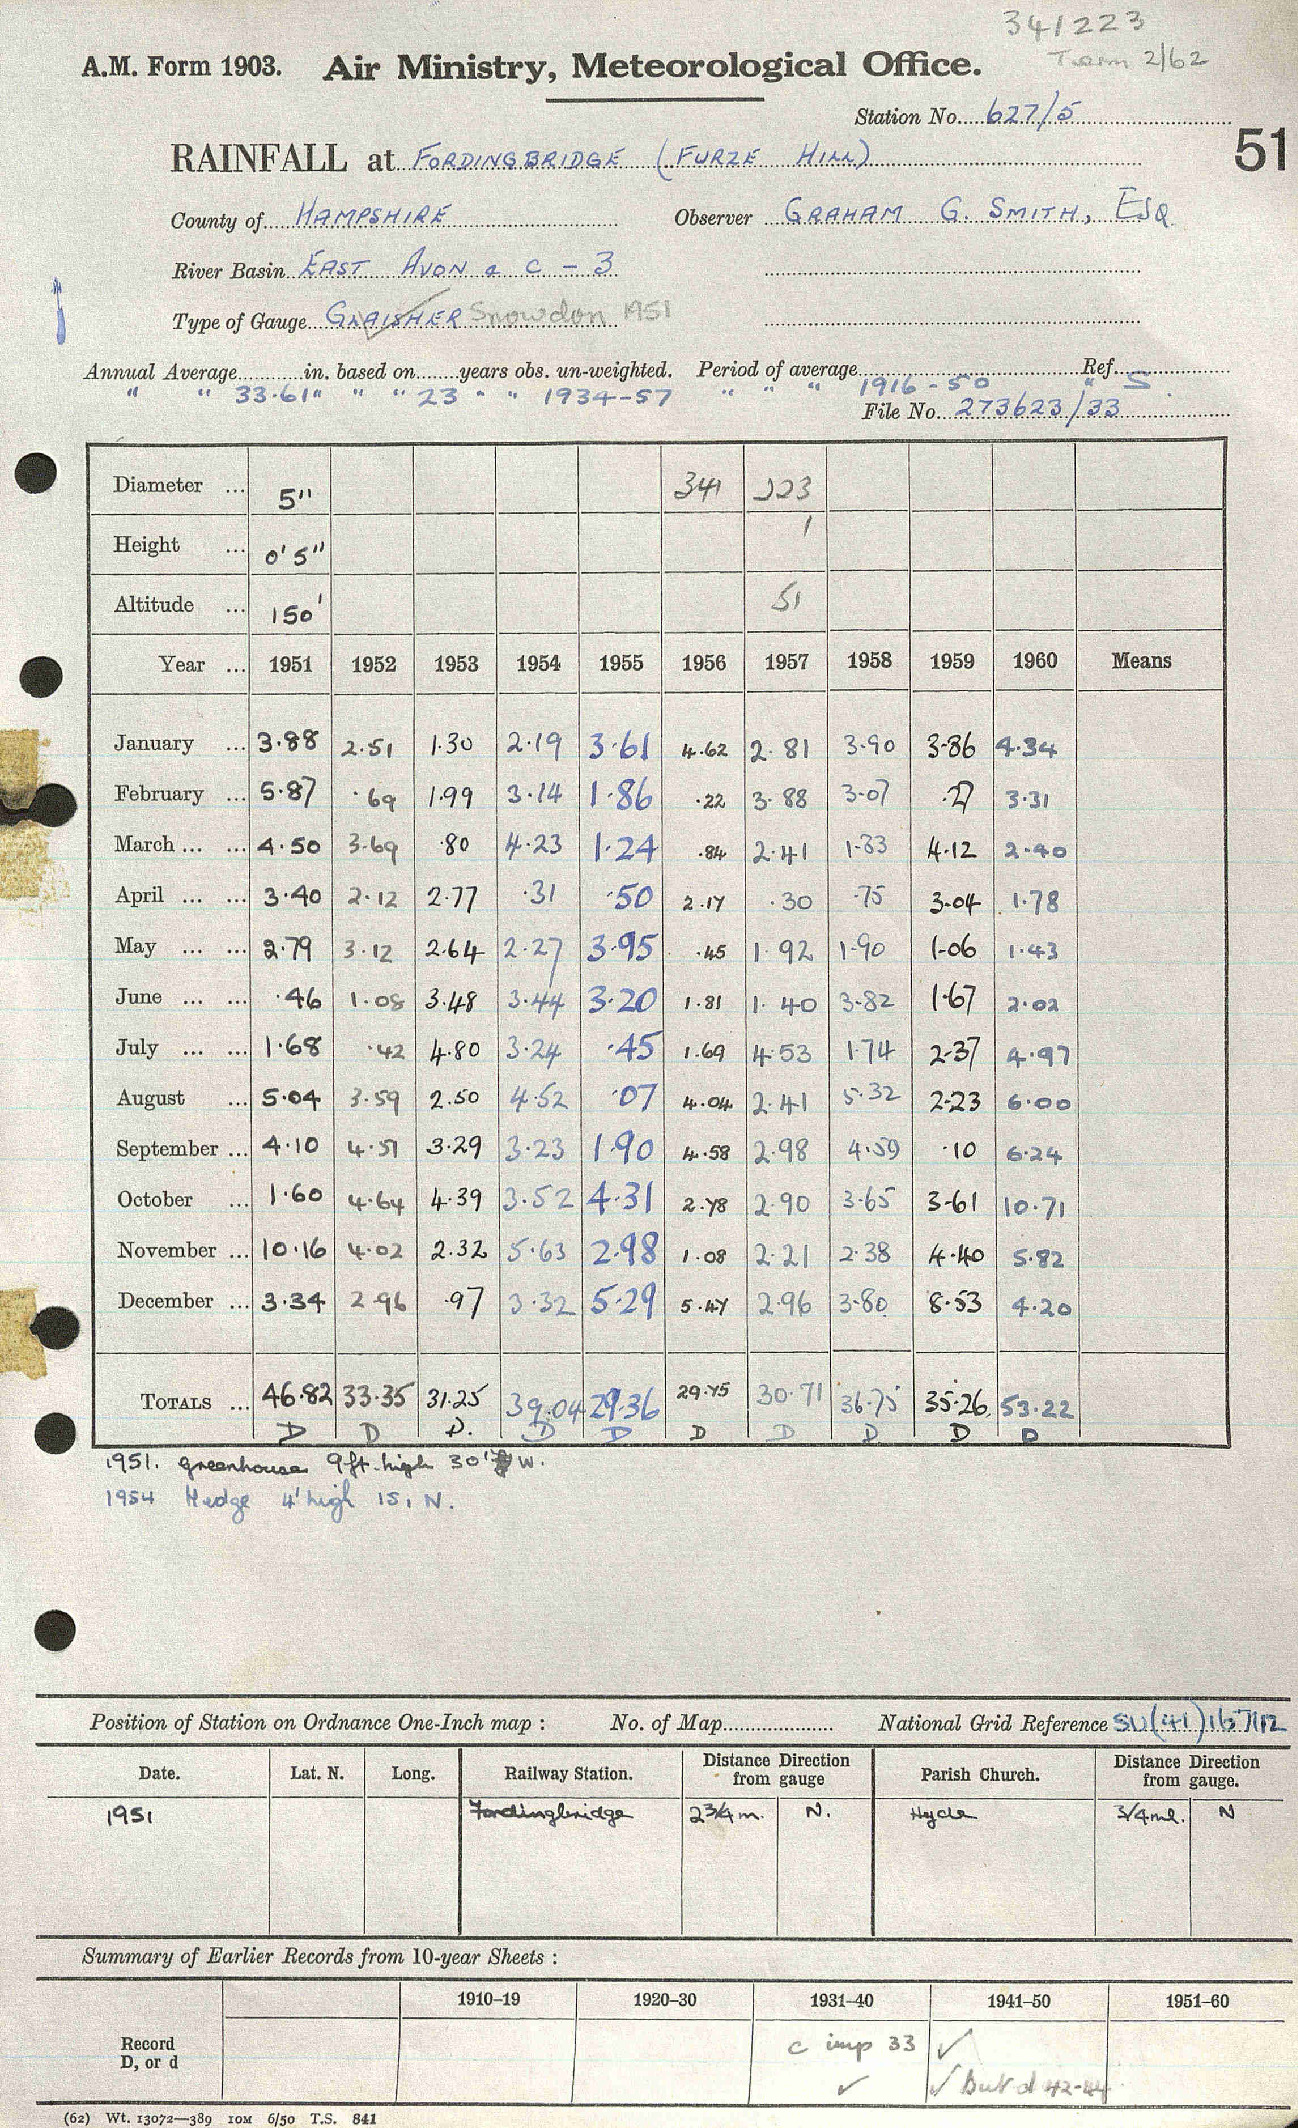 341223
A.M. Form 1903. Air Ministry, Meteorological Office. 2/62
Station No. 627/5
51
RAINFALL at FORDINGBRIDGE (FURZE HILL)
County of HAMPSHIRE Observer GRAHAM G. SMITH, ESQ
River Basin EAST AVON & C - 3
Type of Gauge GLAISHER Snowdon 1951
Annual Average in. based on years obs. un-weighted. Period of average Ref.
" " 33.61" " " 23 " " 1934-57 " " " 1916-50 " S.
File No. 273623/33
Diameter ... 5" 341 223
Height ... 0' 5" 1
Altitude ... 150' 51
Year ... 1951 1952 1953 1954 1955 1956 1957 1958 1959 1960 Means
January ... 3.88 2.51 1.30 2.19 3.61 4.62 2.81 3.90 3.86 4.34
February ... 5.87 .69 1.99 3.14 1.86 .22 3.88 3.07 .27 3.31
March ... ... 4.50 3.69 .80 4.23 1.24 .84 2.41 1.83 4.12 2.40
April ... ... 3.40 2.12 2.77 .31 .50 2.17 .30 .75 3.04 1.78
May ... ... 2.79 3.12 2.64 2.27 3.95 .45 1.92 1.90 1.06 1.43
June ... ... .46 1.08 3.48 3.44 3.20 1.81 1.40 3.82 1.67 2.02
July ... ... 1.68 .42 4.80 3.24 .45 1.69 4.53 1.74 2.37 4.97
August ... 5.04 3.59 2.50 4.52 .07 4.04 2.41 5.32 2.23 6.00
September ... 4.10 4.51 3.29 3.23 1.90 4.58 2.98 4.59 .10 6.24
October ... 1.60 4.64 4.39 3.52 4.31 2.78 2.90 3.65 3.61 10.71
November ... 10.16 4.02 2.32 5.63 2.98 1.08 2.21 2.38 4.40 5.82
December ... 3.34 2.96 .97 3.32 5.29 5.47 2.96 3.80 8.53 4.20
TOTALS ... 46.82 33.35 31.25 39.04 29.36 29.75 30.71 36.75 35.26 53.22
D D D. D D D D D D D
1951. greenhouse 9ft. high 30' W.
1954 Hedge 4' high 15, N.
Position of Station on Ordnance One-Inch map : No. of Map National Grid Reference SU(41)167112
Date. Lat. N. Long. Railway Station. Distance from gauge Direction Parish Church. Distance from gauge. Direction
1951 Fordingbridge 2¾ m. N. Hyde ¾ ml. N
Summary of Earlier Records from 10-year Sheets :
1910–19 1920–30 1931–40 1941–50 1951–60
Record D, or d c imp 33 ✓
✓ ✓ But d 42-44
(62) Wt. 13072—389 10M 6/50 T.S. 841